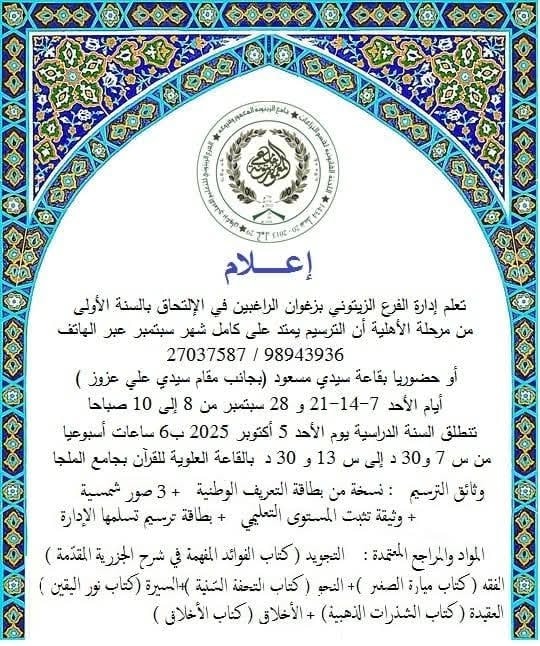 إعـــلام
تعلم إدارة الفرع الزيتوني بزغوان الراغبين في الإلتحاق بالسنة الأولى
من مرحلة الأهلية أن الترسيم يمتد على كامل شهر سبتمبر عبر الهاتف
27037587 / 98943936
أو حضوريا بقاعة سيدي مسعود (بجانب مقام سيدي علي عزوز )
أيام الأحد 7-14-21 و 28 سبتمبر من 8 إلى 10 صباحا
تنطلق السنة الدراسية يوم الأحد 5 أكتوبر 2025 ب6 ساعات أسبوعيا
من س 7 و30 د إلى س 13 و 30 د بالقاعة العلوية للقرآن بجامع الملجا
وثائق الترسيم : نسخة من بطاقة التعريف الوطنية + 3 صور شمسية
+ وثيقة تثبت المستوى التعليمي + بطاقة ترسيم تسلمها الإدارة
المواد والمراجع المعتمدة : التجويد (كتاب الفوائد المفهمة في شرح الجزرية المقدّمة )
الفقه (كتاب ميارة الصغير )+ النحو (كتاب التحفة السّنية )+السيرة (كتاب نور اليقين )
العقيدة (كتاب الشذرات الذهبية) + الأخلاق (كتاب الأخلاق )